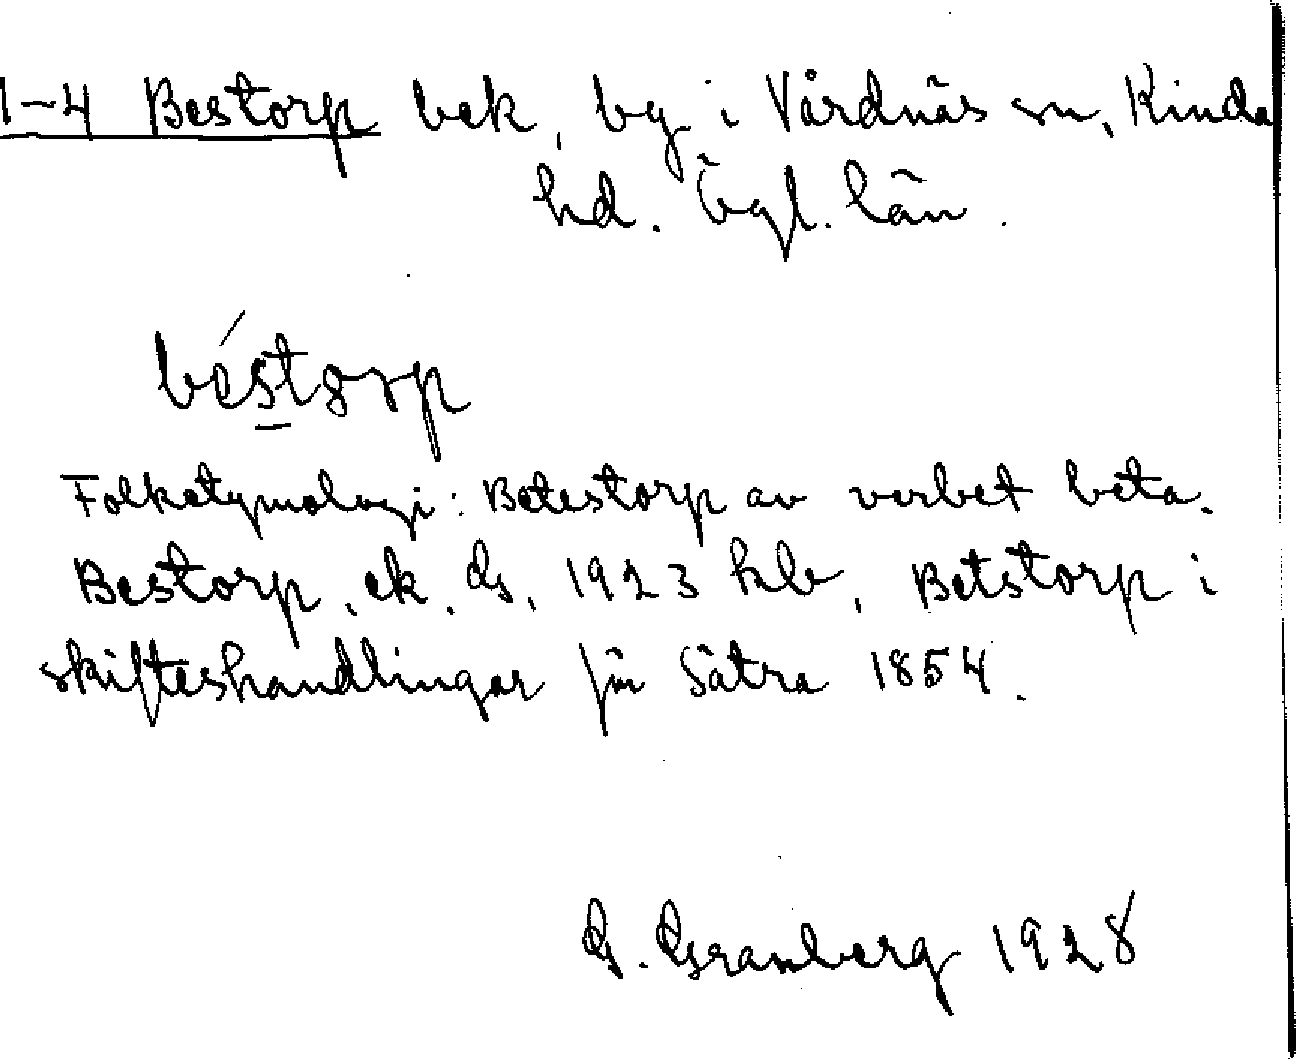 1-4 Bestorp bek, by i Vårdnäs sn, Kinda
hd. Ögl. län.
béstorp
Folketymologi: Betestorp av verbet beta.
Bestorp, ek. G, 1923 hlb, Betstorp i
skifteshandlingar för Sätra 1854.
G. Granberg 1928